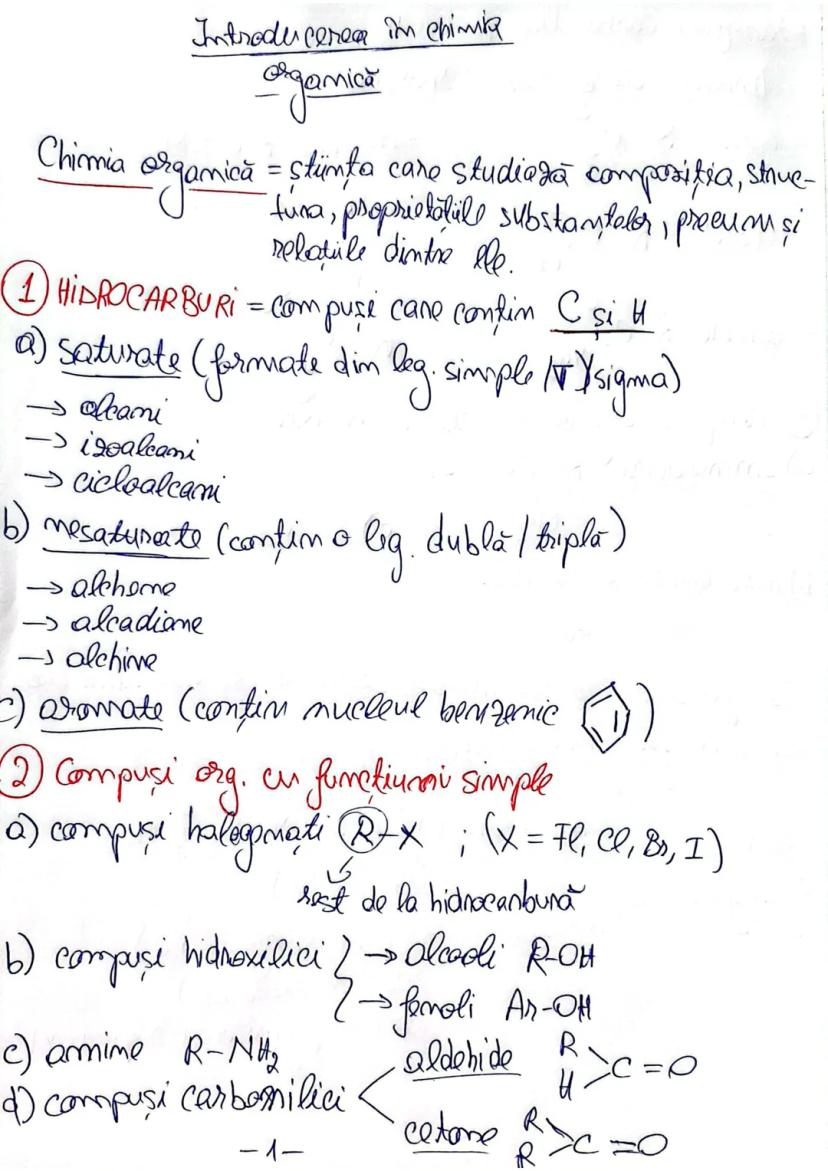 Introducerea în chimia
organică
Chimia organică = știința care studiază compoziția, struc-
tura, proprietățiile substanțelor, precum și
relațiile dintre ele.
1 HIDROCARBURI = compuși care conțin C și H
a) saturate (formate din leg. simple /∇/sigma)
→ alcani
→ izoalcani
→ cicloalcani
b) nesaturate (conțin o leg. dublă/triplă)
→ alchene
→ alcadiene
→ alchine
c) aromate (conțin nucleul benzenic )
2 Compuși org. cu funcțiuni simple
a) compuși halogenați R-X ; (X = Fl, Cl, Br, I)
rest de la hidrocarbură
b) compuși hidroxilici } → alcooli R-OH
→ fenoli Ar-OH
c) amine R-NH₂
d) compuși carbonilici < aldehide R H >C=O
cetone R R >C=O
-1-